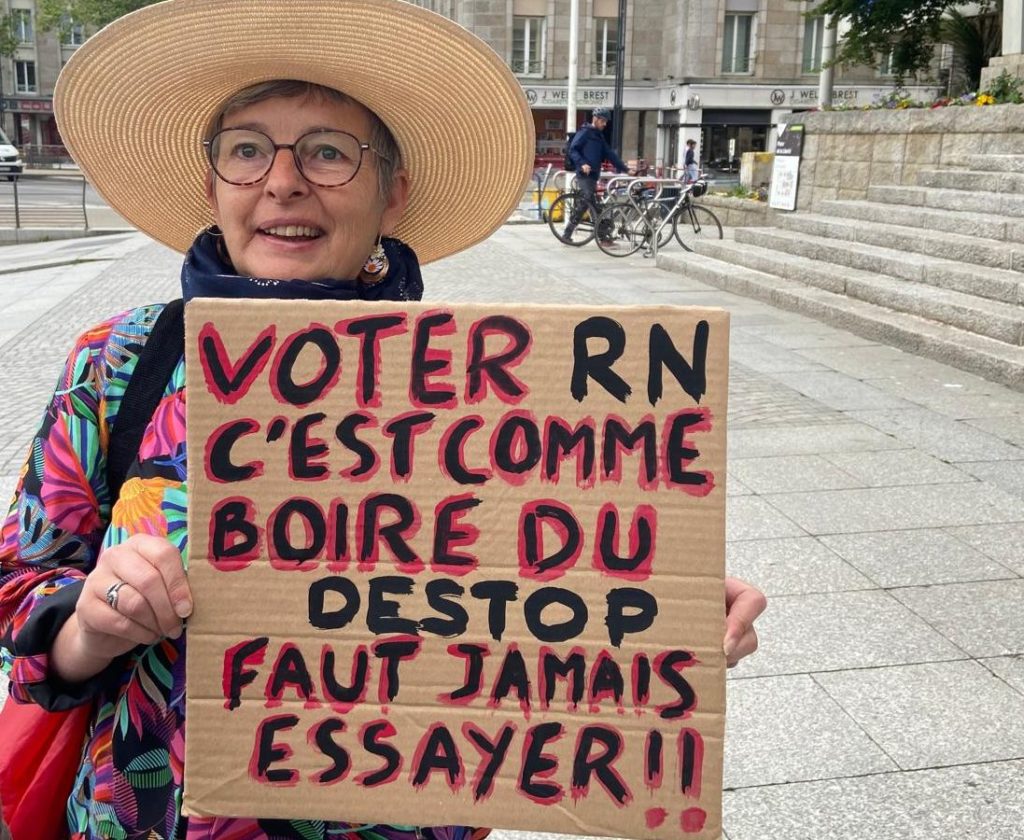 VOTER RN
C'EST COMME
BOIRE DU
DESTOP
FAUT JAMAIS
ESSAYER!!
J WELL BREST
BREST